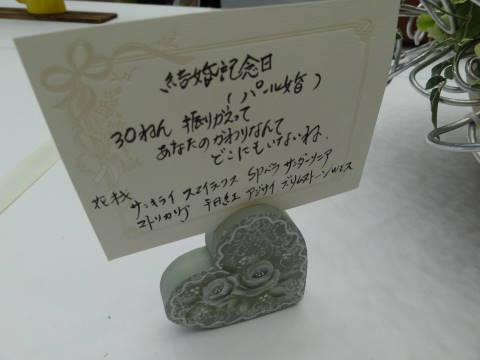 結婚記念日
(パール婚)
30ねん 振りかえって
あなたのかわりなんて
どこにもいないね.
花材 サンキライ スマイラックス SPバラ サンダーソニア
マトリカリア 千日紅 アジサイ